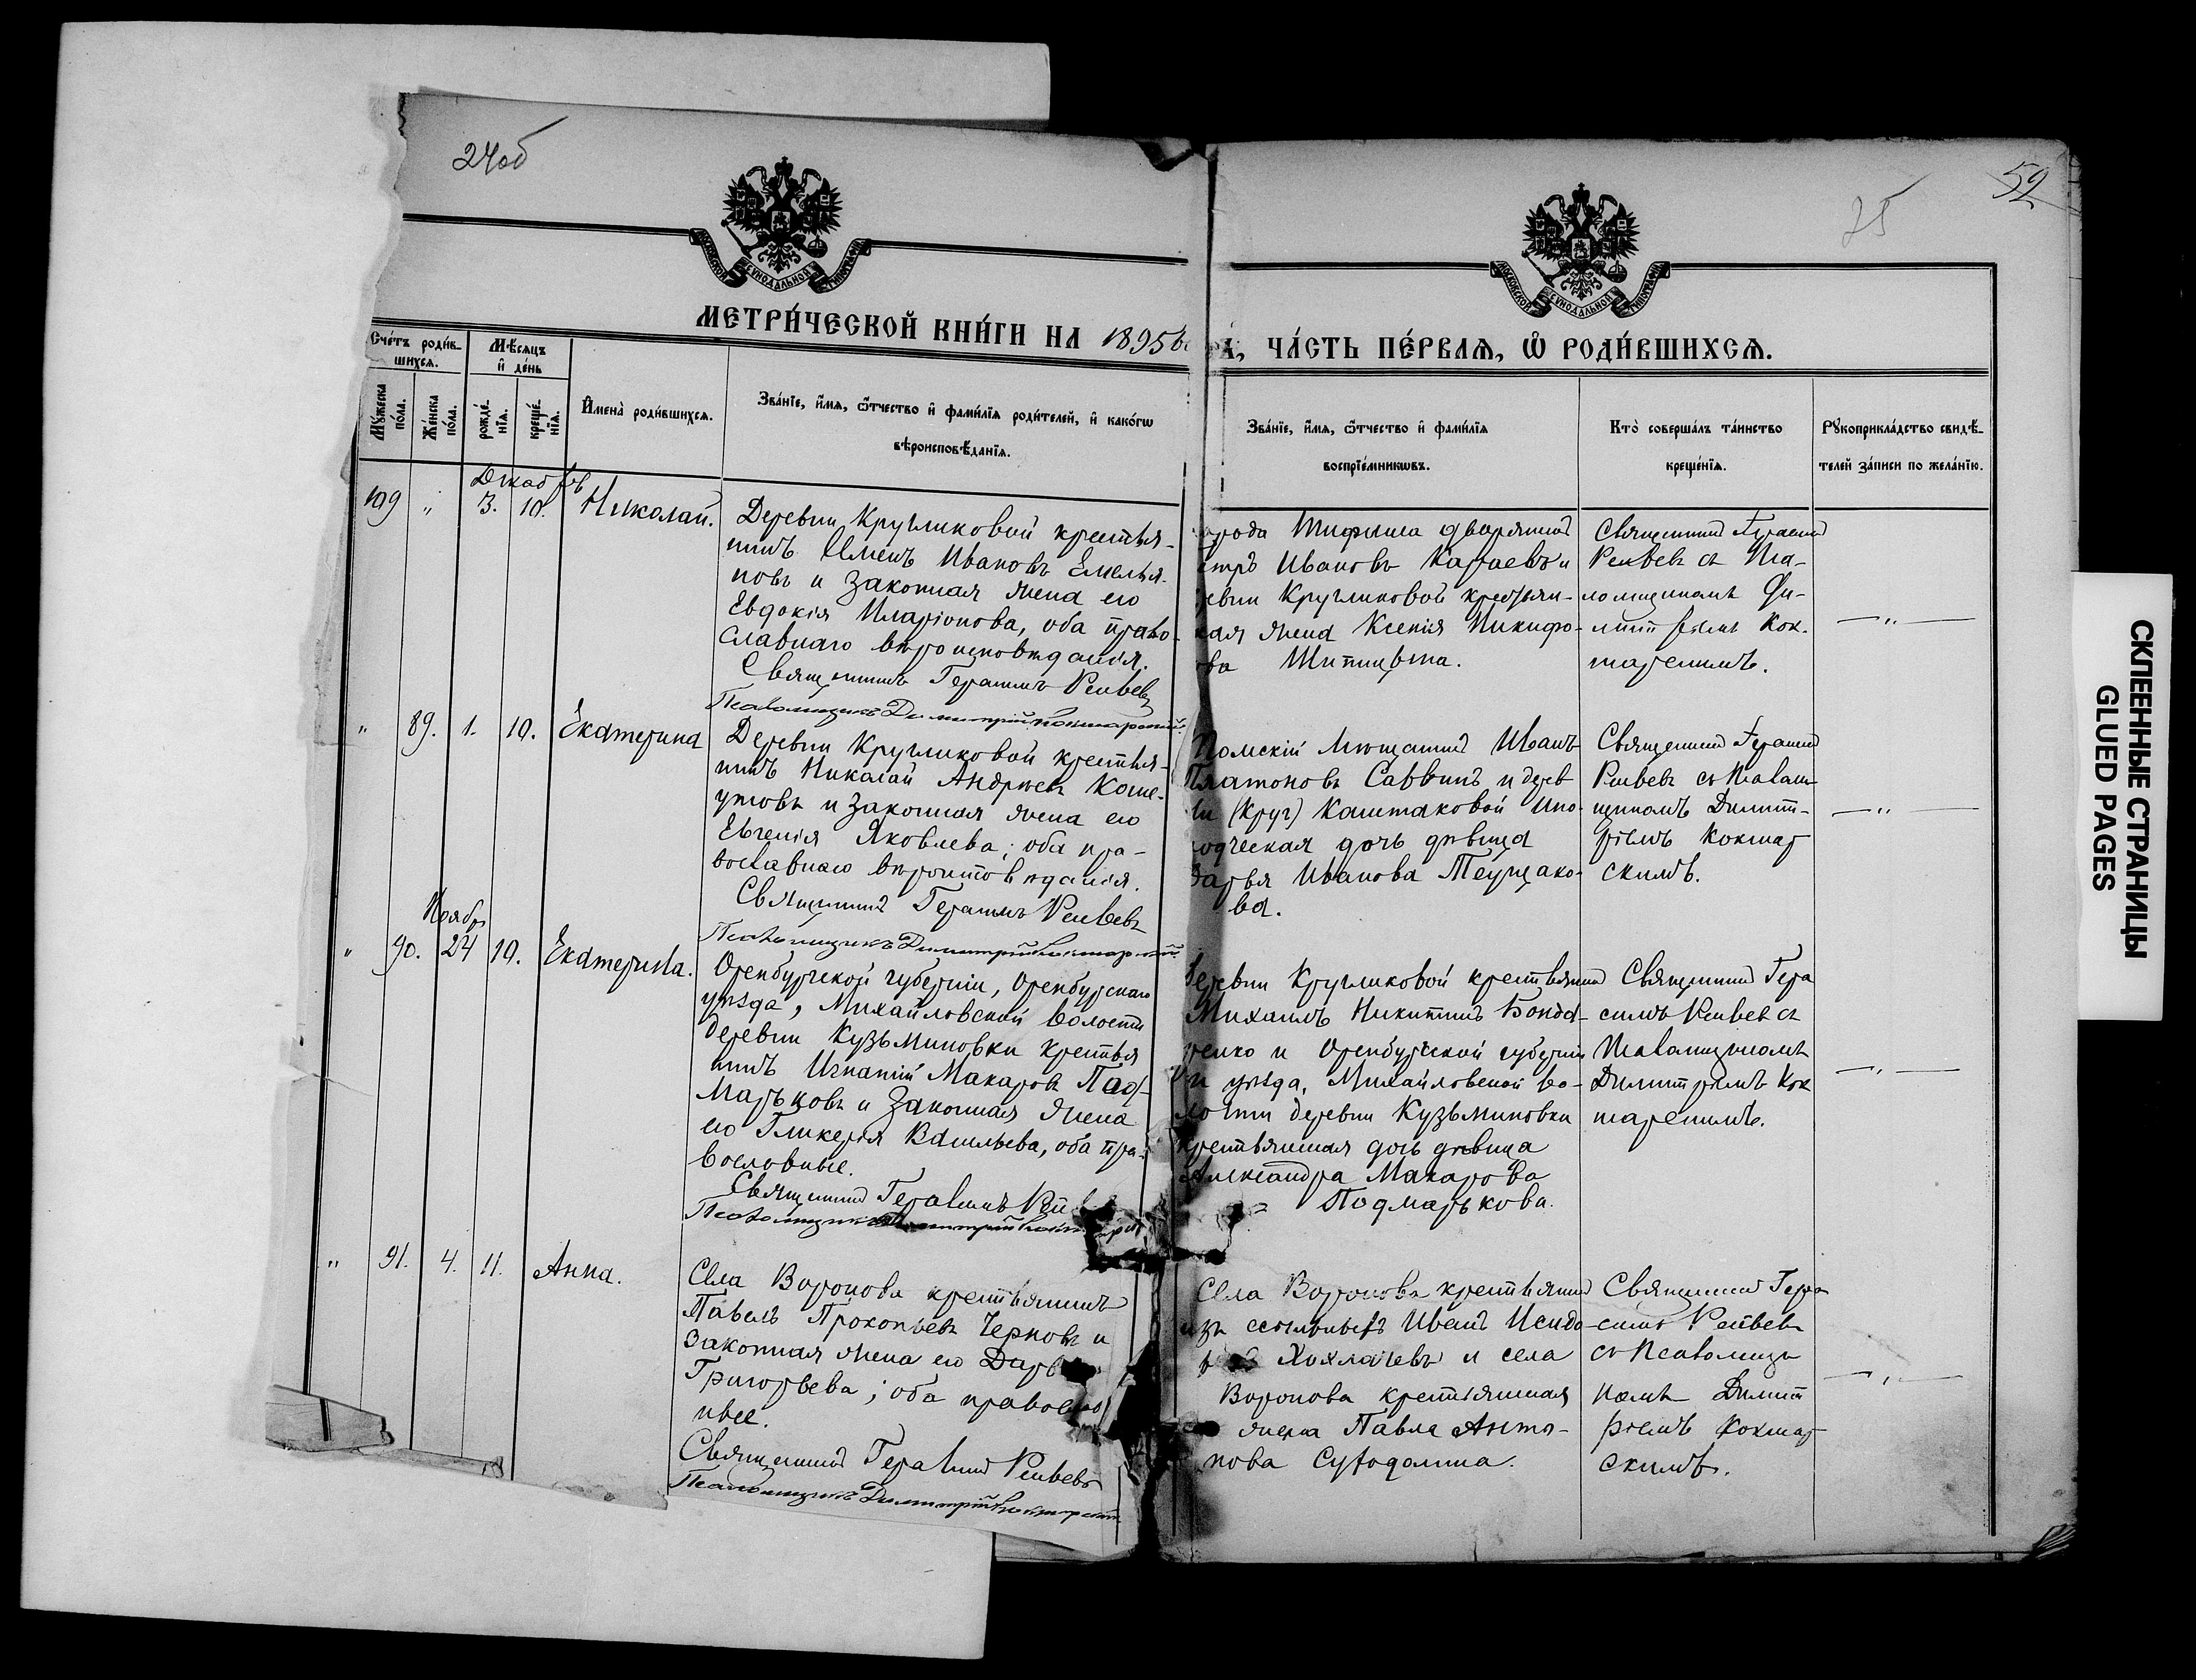 24об
52
25
МОСКОВСКОЙ СѴНОДАЛЬНОЙ ТИПОГРАФІИ
МОСКОВСКОЙ СѴНОДАЛЬНОЙ ТИПОГРАФІИ
МЕТРИ́ЧЕСКОЙ КНИ́ГИ НА 1895
ЧА́СТЬ ПЕ́РВАЯ, Ѡ РОДИ́ВШИХСЯ.
Сче́тъ роди́в-
шихся.
Мꙋ́жеска по́ла.
Же́нска по́ла.
Мѣ́сяцъ и де́нь
рожде́нїя.
креще́нїя.
Имена̀ роди́вшихся.
Зва́нїе, и́мя, ѻ́тчество и фами́лїя роди́телей, и како́гѡ
вѣроисповѣ́данїя.
Зва́нїе, и́мя, ѻ́тчество и фами́лїя
воспрїе́мникѡвъ.
Кто̀ соверша́лъ та́инство
креще́нїя.
Рꙋкоприкла́дство свидѣ́-
телей за́писи по жела́нїю.
Декабрь
109 " 3. 10. Николай.
Деревни Кругликовой крестья-
нинъ Ивановъ Емелья-
новъ и законная жена его
Евдокія Иларіонова, оба право-
славнаго вѣроисповѣданія.
Священникъ Герасимъ
Псаломщикъ Димитрій Кокшарскій
дворянинъ
Ивановъ и
Кругликовой крестьян-
жена Ксенія Никифо-
Священникъ Герасимъ
съ Пса-
ломщикомъ
Кок-
шарскимъ.
" 89. 1. 10. Екатерина
Деревни Кругликовой крестья-
нинъ Николай Андреевъ Коше-
утовъ и законная жена его
Евгенія Яковлева; оба пра-
вославнаго вѣроисповѣданія.
Священникъ Герасимъ
Псаломщикъ Димитрій Кокшарскій
Томскій мѣщанинъ Иванъ
Платоновъ Саввинъ и дерев
ни (Круг) Каштаковой Ино-
родческая дочь дѣвица
Дарья Иванова
ва.
Священникъ Герасимъ
съ Псалом-
щикомъ Димит-
ріемъ Кокшар
скимъ.
Ноябрь
" 90. 24 10. Екатерина.
Оренбургской губерніи, Оренбургскаго
уѣзда, Михайловской волости
деревни Кузьминовки крестья
нинъ Игнатій Макаровъ Под-
марьковъ и законная жена
его Гликерія Васильева, оба пра-
вославные.
Священникъ Герасимъ
Псаломщикъ Димитрій
Деревни Кругликовой крестьянинъ
Михаилъ Никитинъ Бонда-
ренко и Оренбургской губерніи
и уѣзда, Михайловской во-
лости деревни Кузьминовки
крестьянская дочь дѣвица
Александра Макарова
Подмарькова.
Священникъ Гера
симъ съ
Псаломщикомъ
Димитріемъ Кок
шарскимъ.
" 91. 4. 11. Анна.
Села Воронова крестьянинъ
Павелъ Прокопьевъ Черновъ и
законная жена его Дарья
Григорьева; оба православ
ные.
Священникъ Герасимъ
Псаломщикъ Димитрій Кокшарскій
Села Воронова крестьянинъ
изъ ссыльныхъ Иванъ Исидо-
Хохлачевъ и села
Воронова крестьянская
жена Павла Анто-
нова
Священникъ Гера
симъ
съ Псаломщи
комъ Димит
ріемъ Кокшар
скимъ.
СКЛЕЕННЫЕ СТРАНИЦЫ
GLUED PAGES